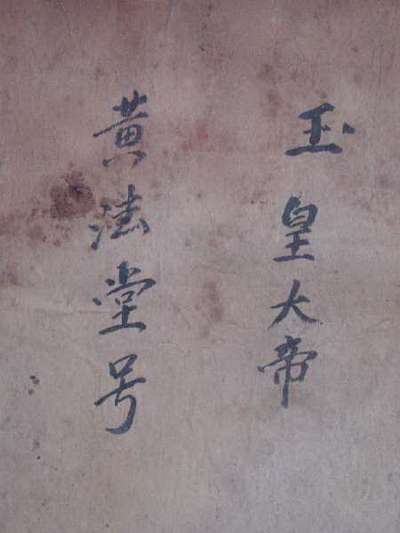 玉皇大帝
黄法堂号